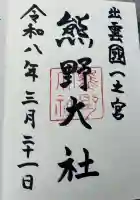 出雲國一之宮
熊野大社
令和八年三月二十一日